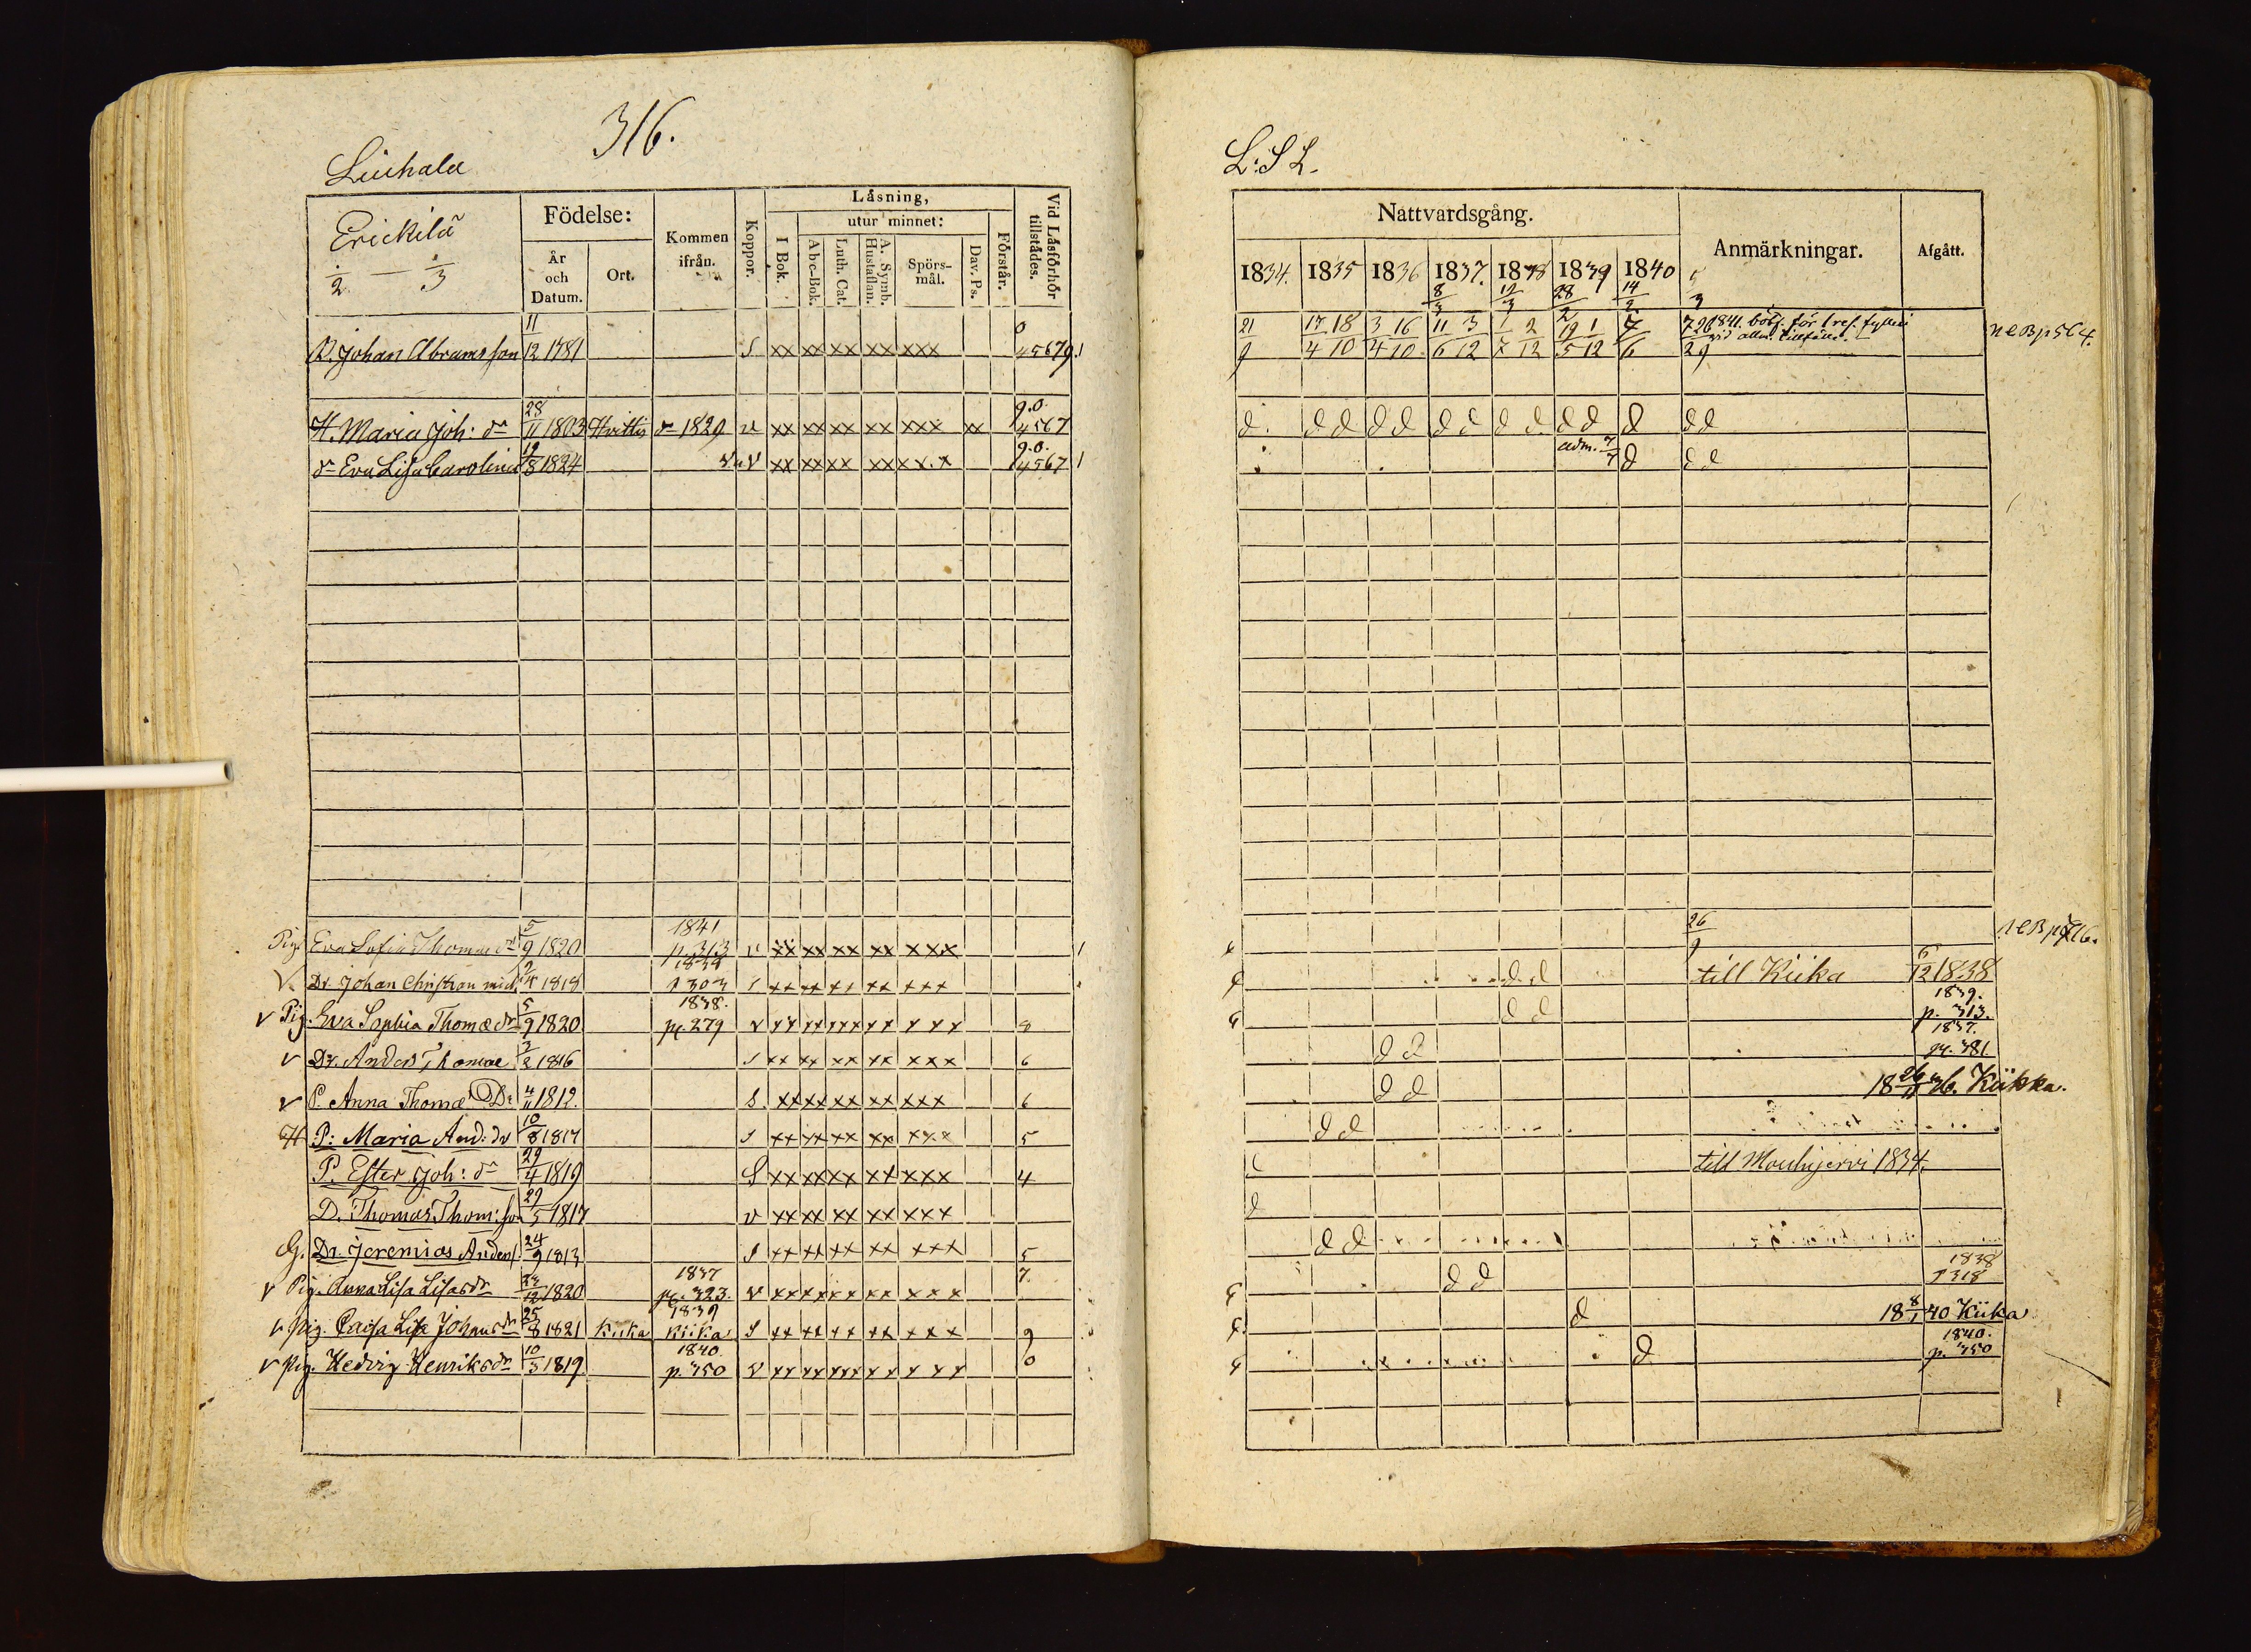 316.
Liuhala
Erickilä
1/2 — 1/3
Födelse:
År och Datum.
Ort.
Kommen ifrån.
Koppor.
Låsning,
I Bok.
utur minnet:
Abc-Bok.
Luth. Cat.
A. Symb. Hustaflan.
Spörs-mål.
Dav. Ps.
Förstår.
Vid Låsförhör tillstådes.
B. Johan Abramsson 11/12 1781 S xx xx xx xx xxx 0 45679 1
H. Maria Joh: dr 28/11 1803 Hvittis dr 1829 v xx xx xx xx xxx xx 9.0. 4567
dr Eva Lisa Carolina 19/8 1824 v xx xx xx xx xx.x 9.0. 4567 1
Pig. Eva Sofia Thomae dr 5/9 1820 1841 p 313 v xx xx xx xx xxx 1
v. Dr. Johan Christian 1818 p 303 S xx xx xx xx xxx
v Pig. Eva Sophia Thomæ dr 5/9 1820 1838. pg. 279 v xx xx xxx xx x xx 8
v Dr. Anders Thomae 1816 S xx xx xx xx xxx 6
v P. Anna Thomæ Dr 4/11 1812. S. xx xx xx xx xxx 6
H P: Maria And: dr 10/8 1817 S xx xx xx xx xxx 5
P. Ester Joh: dr 29/4 1819 S xx xx xx xx xxx 4
D. Thomas Thom: son 29/5 1817 v xx xx xx xx xxx
G. Dr. Jeremias Anders. 24/9 1813 S xx xx xx xx xxx 5
v Pig. Anna Lisa Lisas dr 23/12 1820 1837 pg. 323. v xx xx xx xx xxx 7.
v Pig. Caisa Lisa Johans dr 25/8 1821 Kiika 1839 Kiika S xx xx xx xx xxx 9
v Pig. Hedvig Henriks dr 10/3 1819 1840. p. 350 v xx xx xxx xx x xx 0
L: S L.
Nattvardsgång.
Anmärkningar.
Afgått.
1834. 1835 1836 1837. 1838 1839 1840
8/3 12/3 28/2 14/2
21/9 17/4 18/10 3/4 16/10 11/6 3/12 1/7 2/12 19/5 1/12 7/6 1841. böt. för 1 res. fylleri vid allm. tillfälle. NCB p 564.
d. d d d d d d d d d d d d d
adm. 7/7 d d d
26/9 NCB p
d. d till Kiika 6/12 1838
d d 1839. p. 313.
d d 1837. pg. 381.
d d 18 26/11 36. Kiikka.
d d
d till Mouhijervi 1834.
d
d d
d d 1838 p 318
d 18 8/1 40 Kiika
d 1840. p. 350